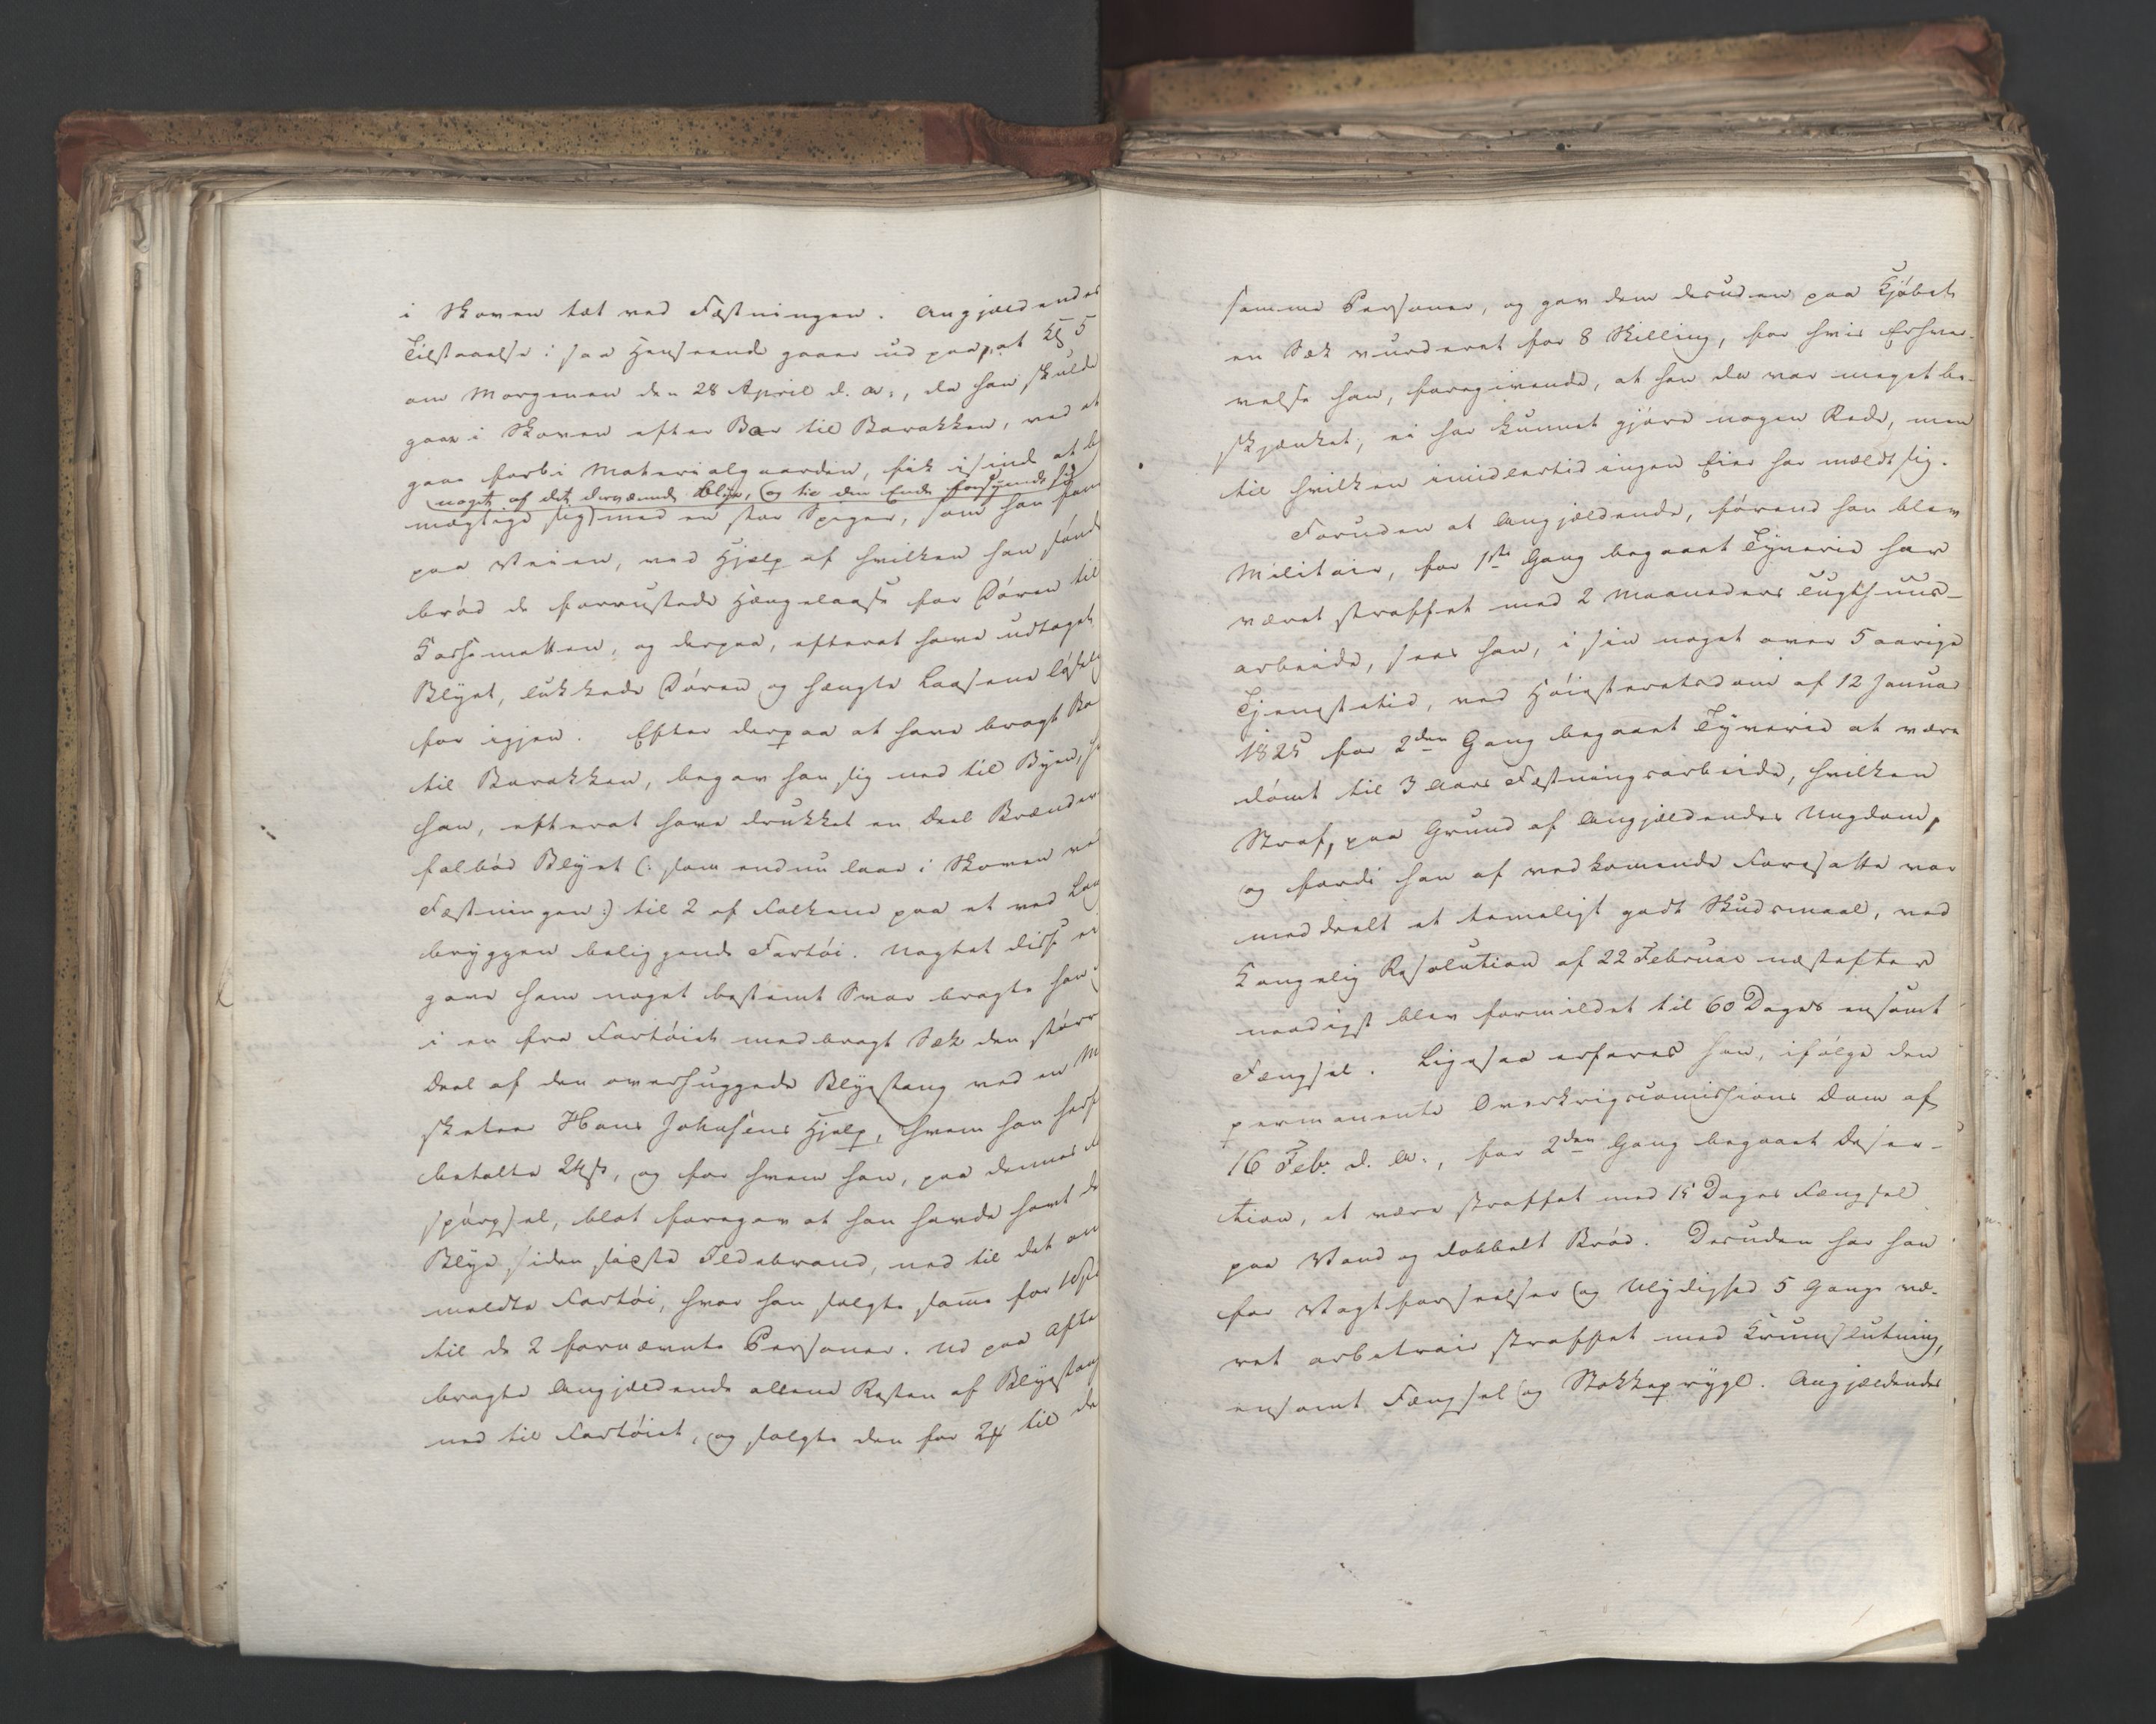 i Skoven tæt ved Fæstningen. Angjældendes
Tilstaaelse i saa Henseende gaaer ud paa, at Kl 5
om Morgenen den 28 April d. A., da han skulde
gaae i Skoven efter Bar til Barakken, ved at
gaae forbi Materialgaarden, fik isinde at be
noget af det derværende Blye, og til den Ende forsynede sig
mægtige sig med en stor Spiger, som han fan
paa Veien, ved Hjælp af hvilken han sønde
brød de forrustede Hængelaase for Døren til
Kassematten, og derpaa, efterat have udtaget
Blyet, lukkede Døren og hængte Laasene løselig
for igjen. Efter derpaa at have bragt Ba
til Barakken, begav han sig ned til Byen, h
han, efterat have drukket en Deel Brændev
falbød Blyet (: som endnu laae i Skoven ved
Fæstningen:) til 2 af Folkene paa et ved Lang
bryggen beliggende Fartøi. Uagtet disse ei
gave ham noget bestemt Svar bragte han
i en fra Fartøiet medbragt Sæk den større
Deel af den overhuggede Blyestang ved en Mu
sketeer Hans Johnsens Hjelp, hvem han herfo
betalte 24 s, og for hvem han, paa dennes
spørgsel, blot foregav at han havde havt de
Blye siden sidste Ildebrand, ned til det om
meldte Fartøi, hvor han solgte same for
til de 2 fornævnte Personer. Ud paa Afte
bragte Angjældende allene Resten af Blyestang
ned til Fartøiet, og solgte den for 24 til de
samme Personer, og gav dem desuden paa Kjøbet
en Sæk vurderet for 8 Skilling, for hvis Erhver-
velse han, foregivende, at han da var meget be-
skjænket, ei har kunnet gjøre nogen Rede, men
til hvilken imidlertid ingen Eier har meldt sig.
Foruden at Angjældende, førend han blev
Militair, for 1ste Gang begaaet Tyverie har
været straffet med 2 Maaneders Tugthuus-
arbeide, sees han, i sin noget over 5 aarige
Tjenestetid, ved Høiesteretsdom af 12 Januar
1825 for 2den Gang begaaet Tyverie at være
dømt til 3 Aars Fæstningsarbeide, hvilken
Straf, paa Grund af Angjældendes Ungdom,
og fordi han af vedkomende Foresatte var
meddeelt et temeligt godt Skudsmaal, ved
Kongelig Resolution af 22 Februar næstefter
naadigst blev formildet til 60 Dages eensomt
Fængsel. Ligesaa erfares han, ifølge den
permanente Overkrigscomissions Dom af
16 Febr. d. A., for 2den Gang begaaet Deser-
tion, at være straffet med 15 Dages Fængsel
paa Vand og dobbelt Brød. Desuden har han
for Vagtforseelser og Ulydighed 5 Gange væ-
ret arbitrair straffet med Krumslutning,
eensomt Fængsel og Stokkeprygl. Angjældendes